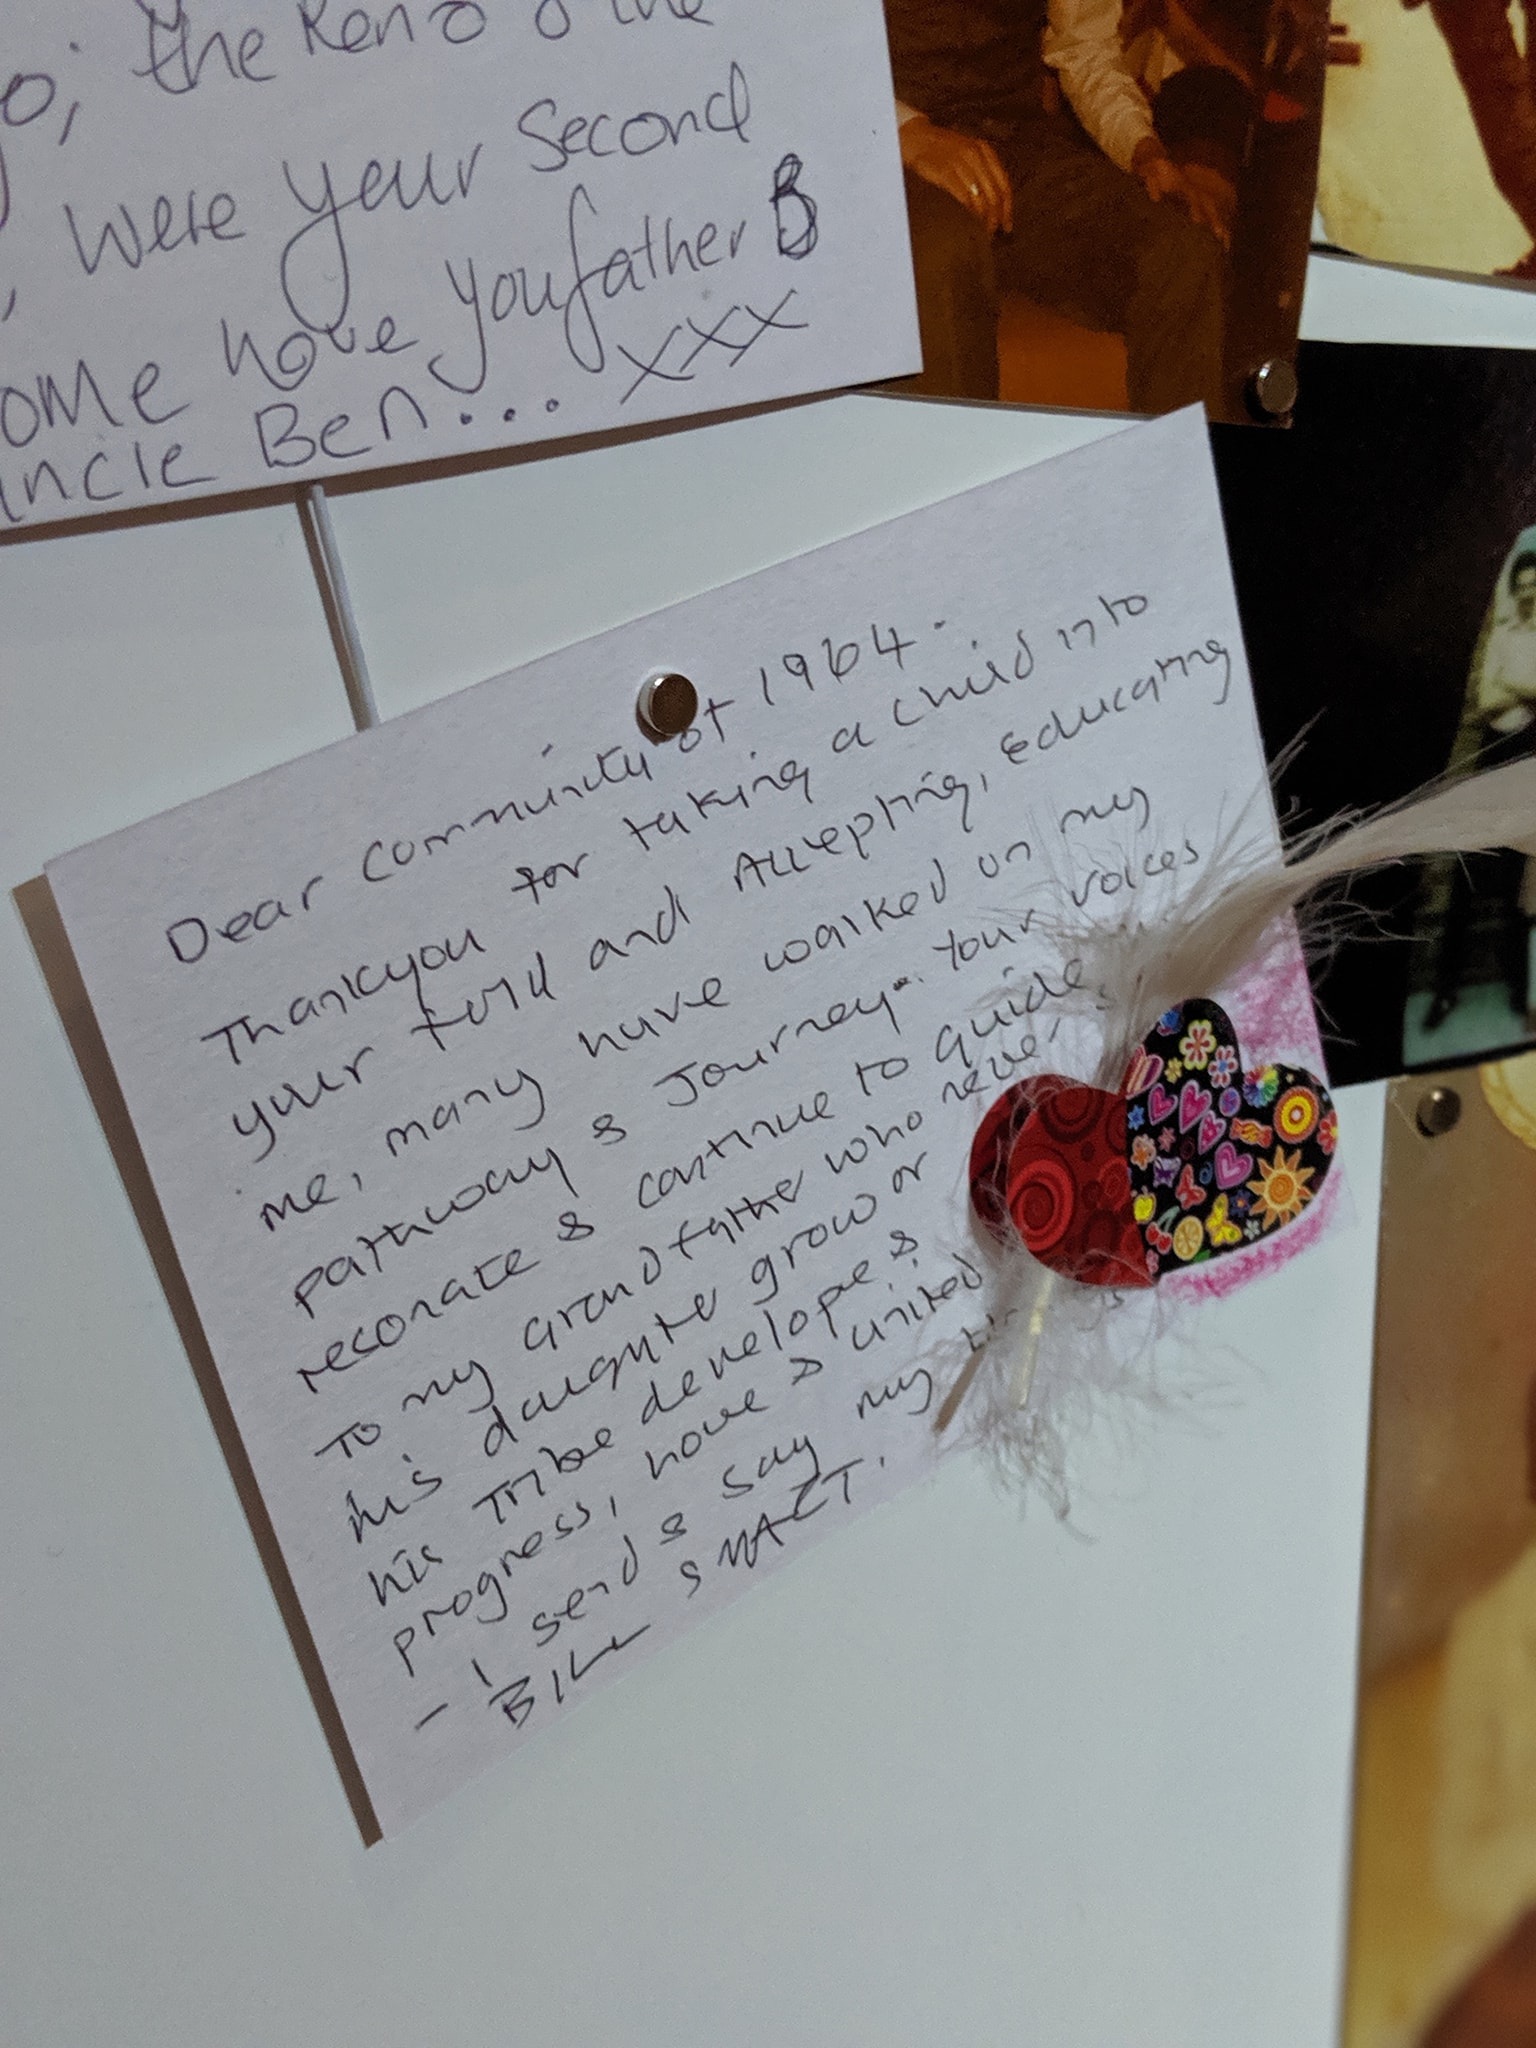 o, the Reno & the
, were your Second
ome have you father B
uncle Ben... xxx
Dear Community of 1964.
Thankyou for taking a child into
your fold and Accepting, educating
me, many have walked on my
pathway & Journey. Your voices
resonate & continue to guide
To my Grandfathe who neve
his daughte grow or
his Tribe develope &
progress, have & united
- I send & say my
BILL SMACT.